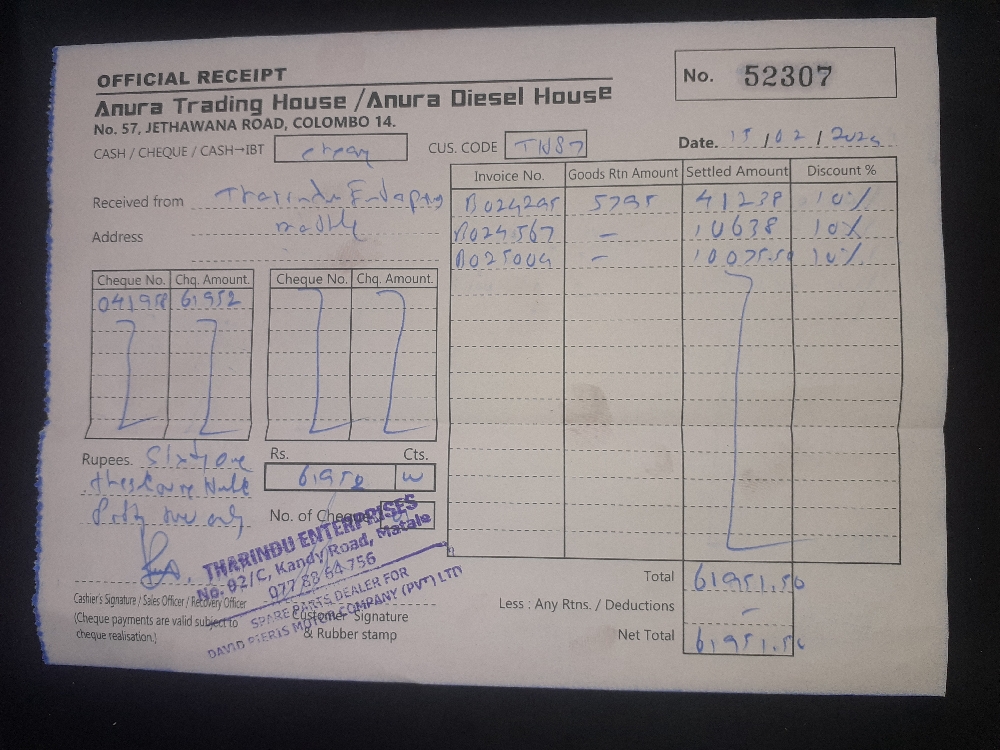 OFFICIAL RECEIPT
No. 52307
Anura Trading House / Anura Diesel House
No. 57, JETHAWANA ROAD, COLOMBO 14.
CASH / CHEQUE / CASH→IBT
CUS. CODE TN87
Date. 15 / 02 / 2025
Received from Tharindu
Address
Invoice No. Goods Rtn Amount Settled Amount Discount %
B024295 5795 41238 10%
B024567 – 10638 10%
B025009 – 10075.50 10%
Cheque No. Chq. Amount. Cheque No. Chq. Amount.
041958 61952
Rupees. Sixty one
Rs. Cts.
61952
only
No. of Cheque
THARINDU ENTERPRISES
No. 02/C, Kandy Road, Matale
077 88 64 756
SPARE PARTS DEALER FOR
DAVID PIERIS MOTOR COMPANY (PVT) LTD
Cashier's Signature / Sales Officer / Recovery Officer
(Cheque payments are valid subject to
cheque realisation.)
Customer Signature
& Rubber stamp
Total 61951.50
Less : Any Rtns. / Deductions –
Net Total 61951.50